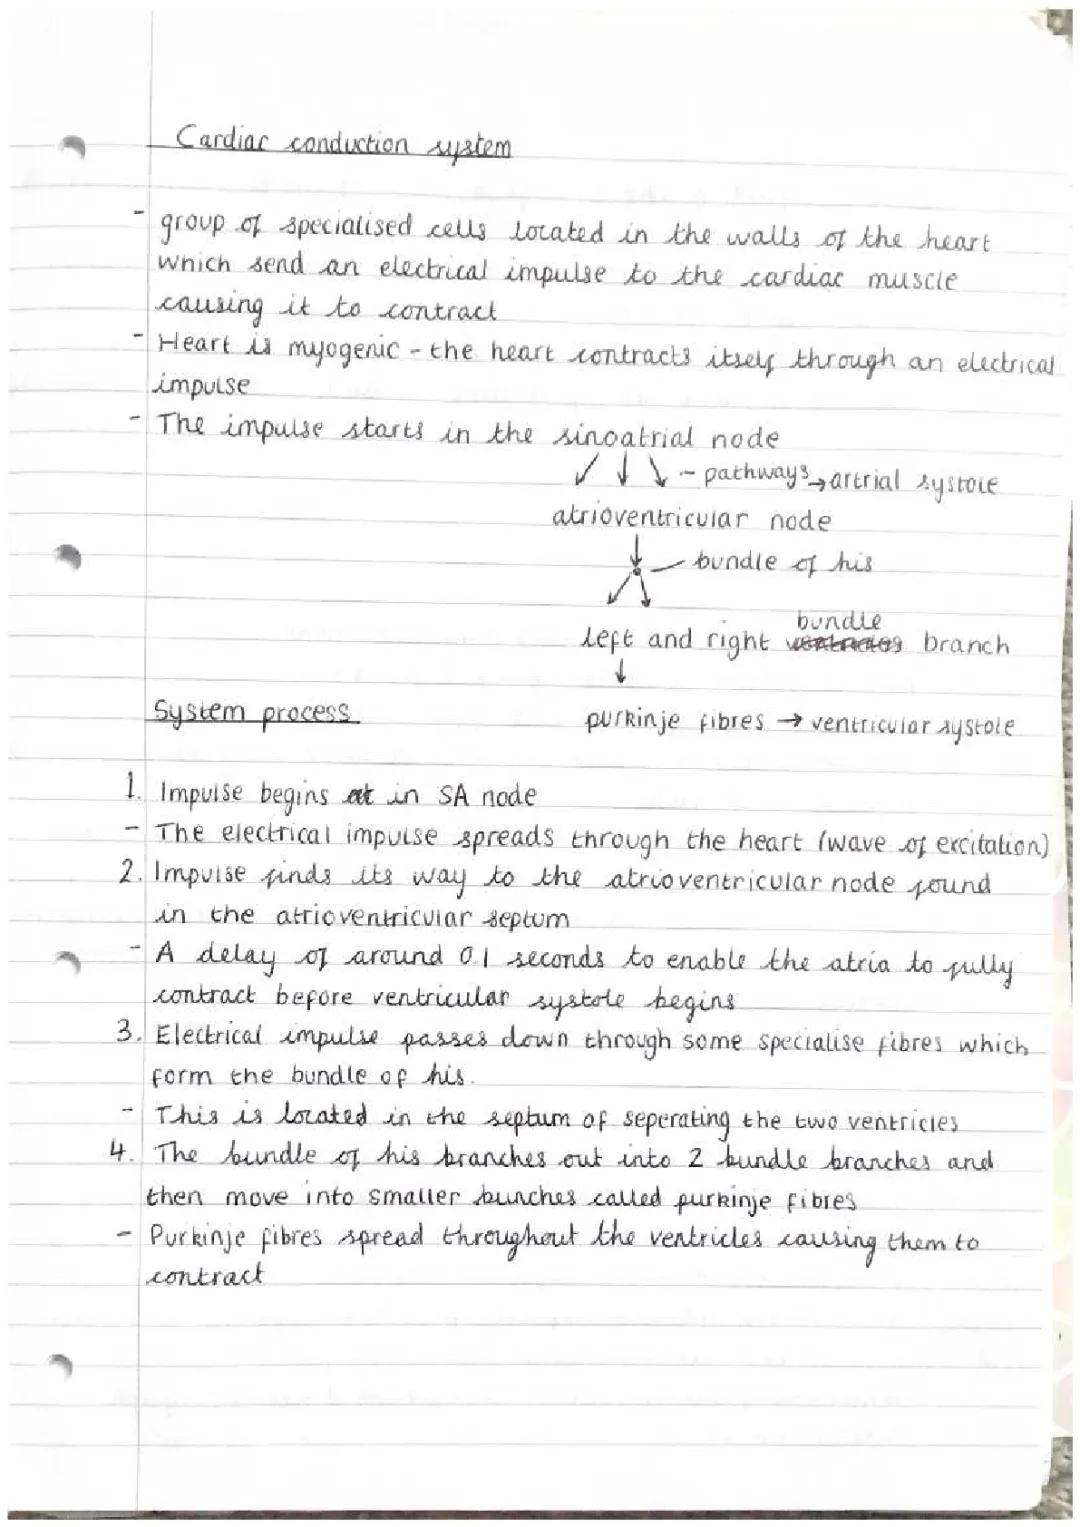 Cardiac conduction system
- group of specialised cells located in the walls of the heart
which send an electrical impulse to the cardiac muscle
causing it to contract
- Heart is myogenic - the heart contracts itself through an electrical
impulse
- The impulse starts in the sinoatrial node
↙ ↓ ↘ - pathways → artrial systole
atrioventricular node
↓ — bundle of his
↙ ↘
bundle
left and right branch
↓
System process
purkinje fibres → ventricular systole
1. Impulse begins at in SA node
- The electrical impulse spreads through the heart (wave of excitation)
2. Impulse finds its way to the atrioventricular node found
in the atrioventricular septum
- A delay of around 0.1 seconds to enable the atria to fully
contract before ventricular systole begins
3. Electrical impulse passes down through some specialise fibres which
form the bundle of his.
- This is located in the septum of seperating the two ventricles
4. The bundle of his branches out into 2 bundle branches and
then move into smaller bunches called purkinje fibres
- Purkinje fibres spread throughout the ventricles causing them to
contract